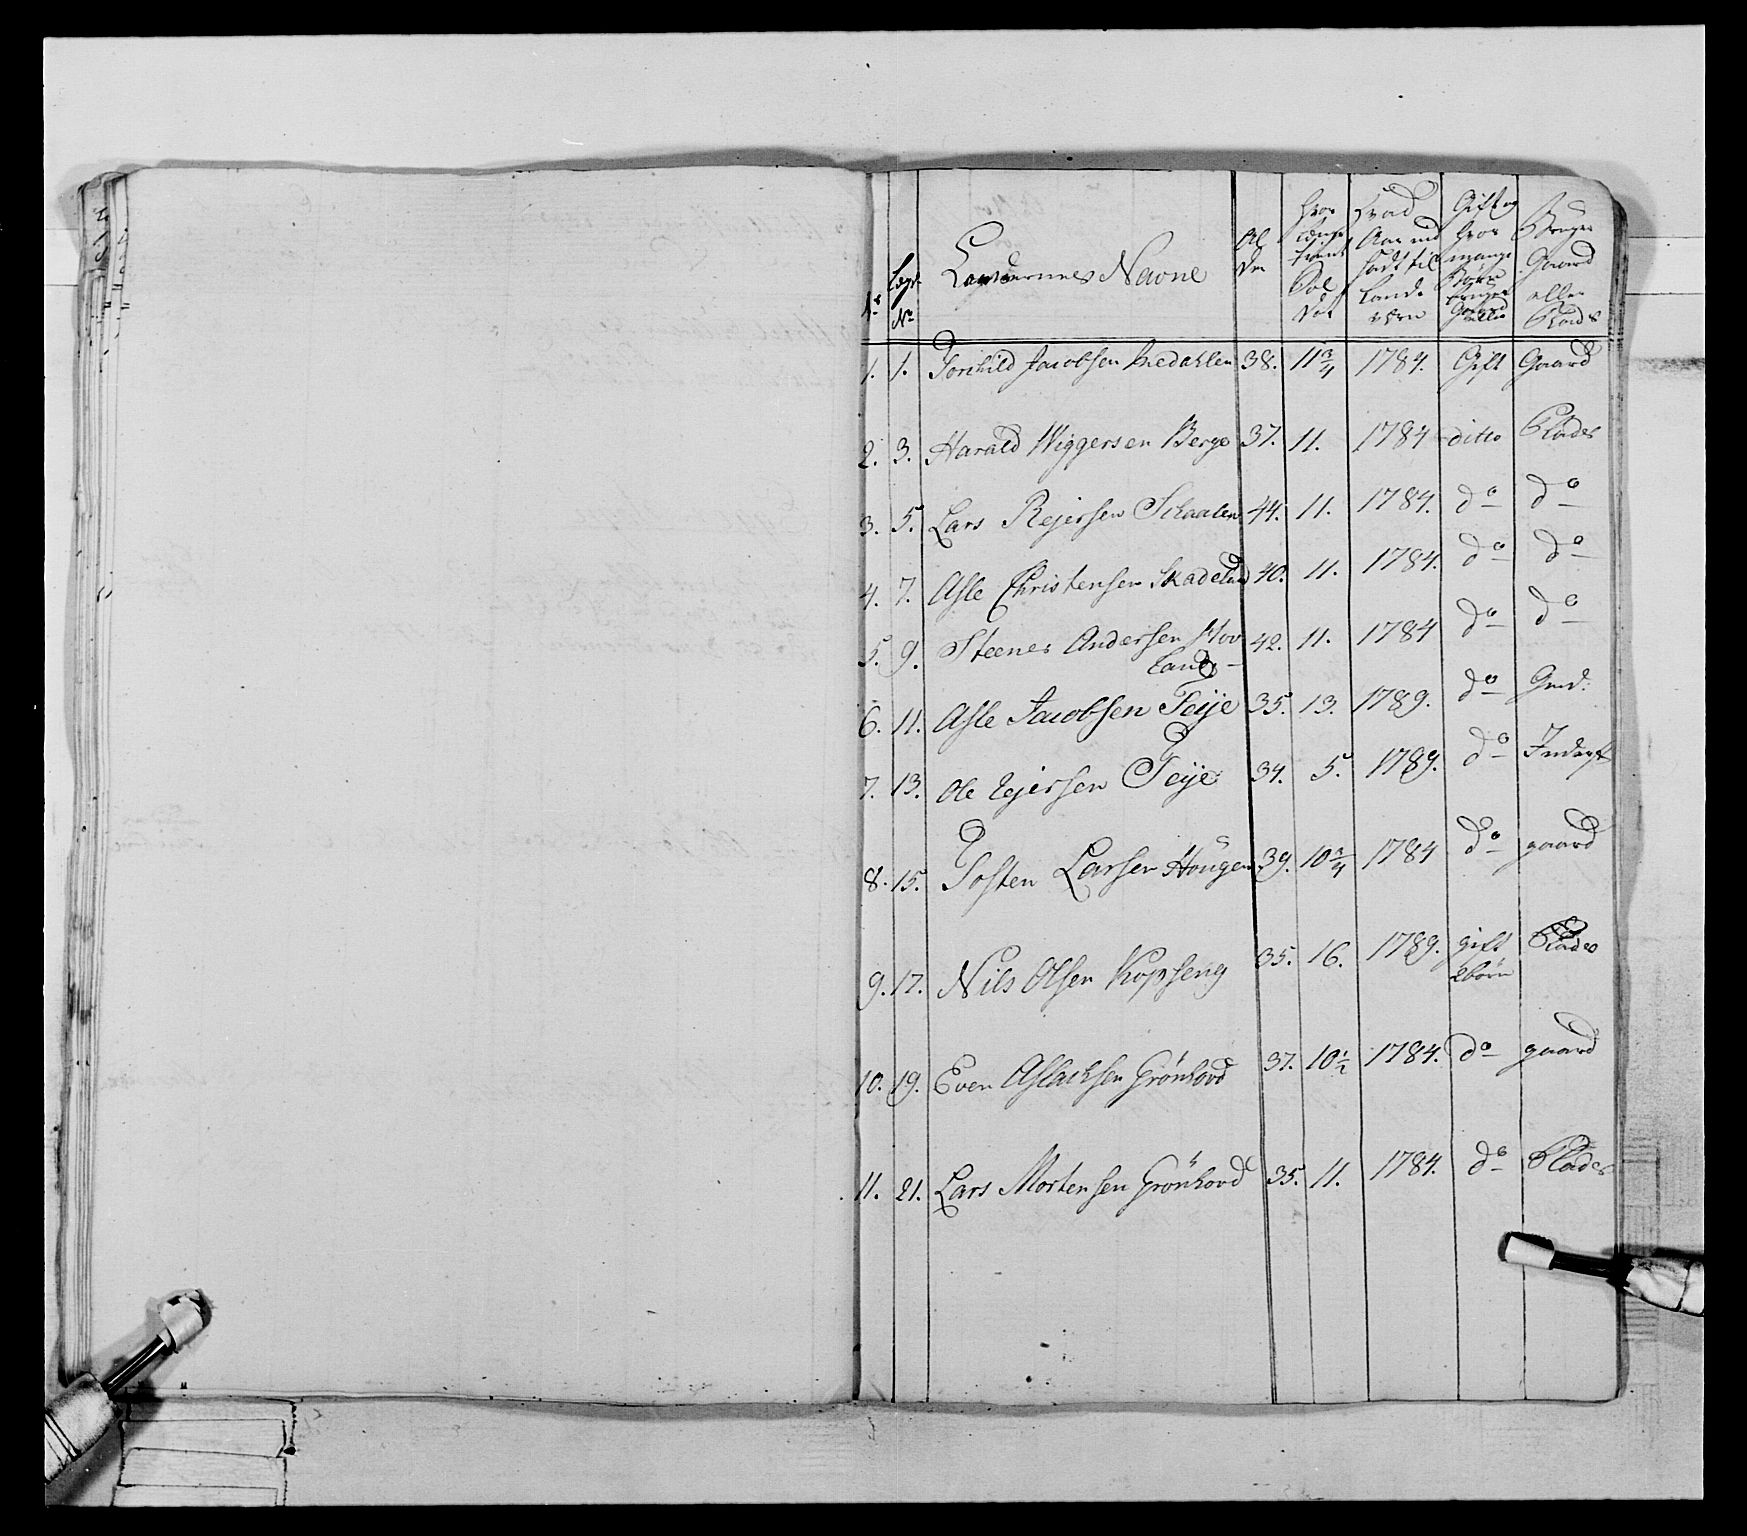 No
Lægd
No
Lægdernes Navne
Al
der
Hvor
længe
tient
Sol
dat
Hvad
Aar ind
sadt til
Land
værn
Gift og
hvor
mange
Börn
bruger
Gaard
eller
Bruger
Gaard
eller
Plads
1. 1. Torchild Jacobsen Bredahlen 38. 11 3/4 1784. Gift Gaard
2. 3. Harald Wiggersen Berge 37. 11. 1784 ditto Plads
3. 5. Lars Rejersen Schaalen 44. 11. 1784. do do
4. 7. Asle Christensen Skadelan 40. 11. 1784. do do
5. 9. Steener Andersen Hov 42. 11. 1784 do do
land
6. 11. Asle Jacobsen Feije 35. 13. 1789. do Grd:
7. 13. Ole Ejersen Feije 34. 5. 1789. do Inderst
8. 15. Tosten Larsen Hougen 39. 10 3/4 1784 do gaard
9. 17. Nils Olsen Kopseng 35. 16. 1789. gift Plads
2 börn
10. 19. Even Aslachsen Grönhovd 37. 10 1/2 1784. do gaard
11. 21. Lars Mortensen Grönhovd 35. 11. 1784. do Plads